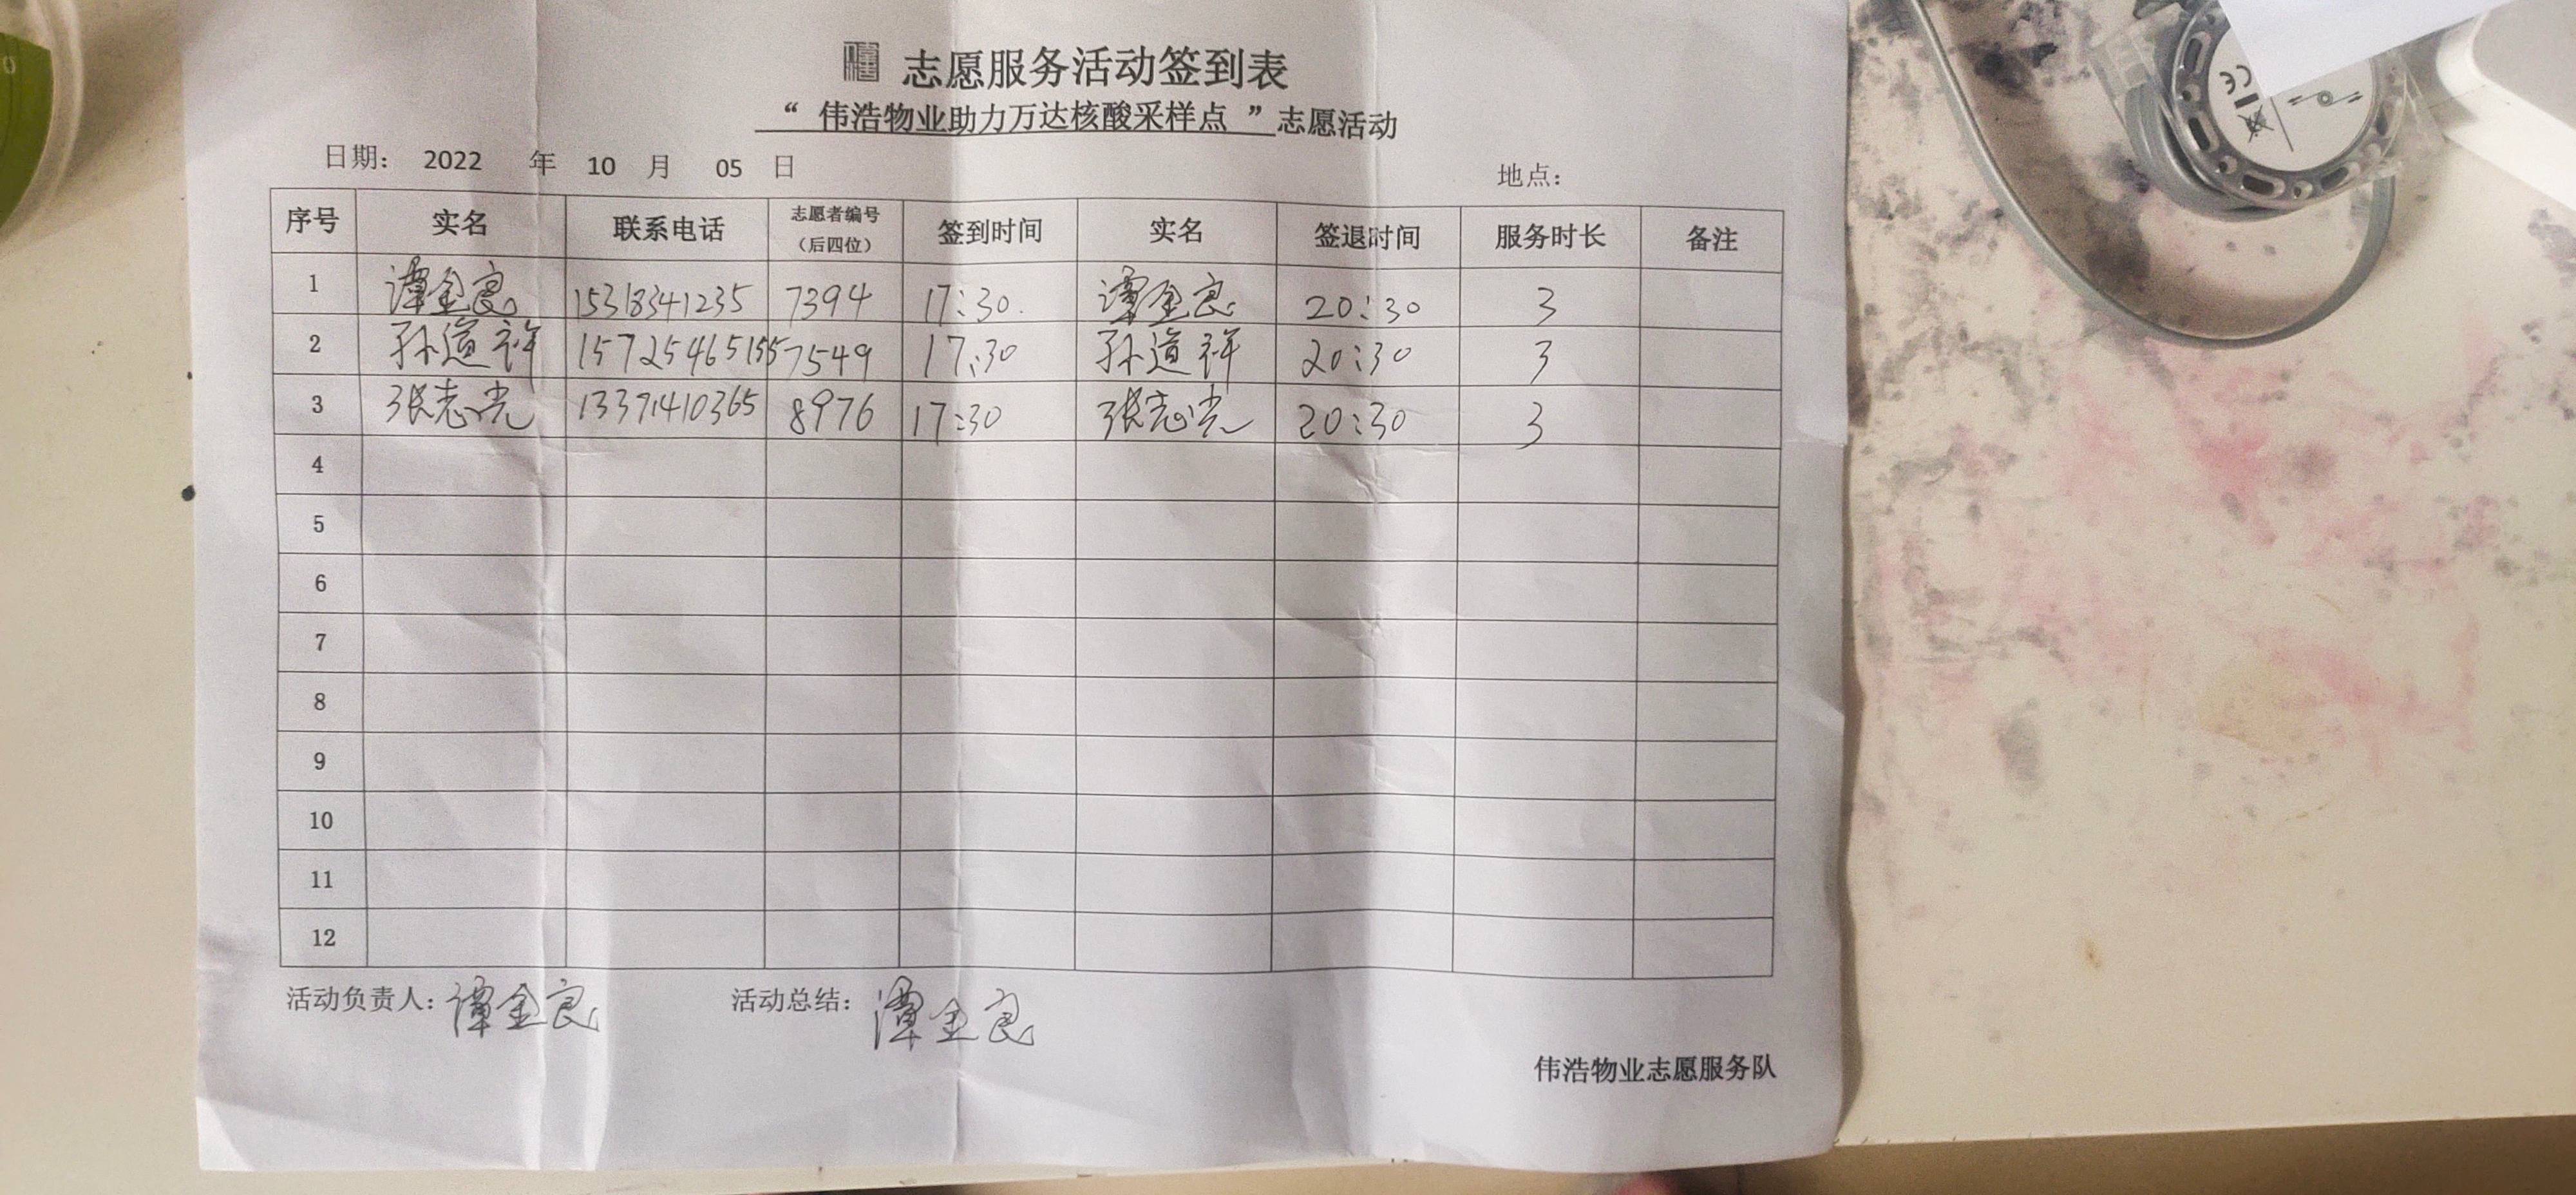 志愿服务活动签到表
“ 伟浩物业助力万达核酸采样点 ”志愿活动
日期： 2022 年 10 月 05 日 地点：
序号 实名 联系电话 志愿者编号（后四位） 签到时间 实名 签退时间 服务时长 备注
1 谭金良 15318341235 7394 17:30 谭金良 20:30 3
2 孙道祥 7549 17:30 孙道祥 20:30 3
3 张志光 13371410365 8976 17:30 张志光 20:30 3
4
5
6
7
8
9
10
11
12
活动负责人：谭金良 活动总结：谭金良
伟浩物业志愿服务队
CE